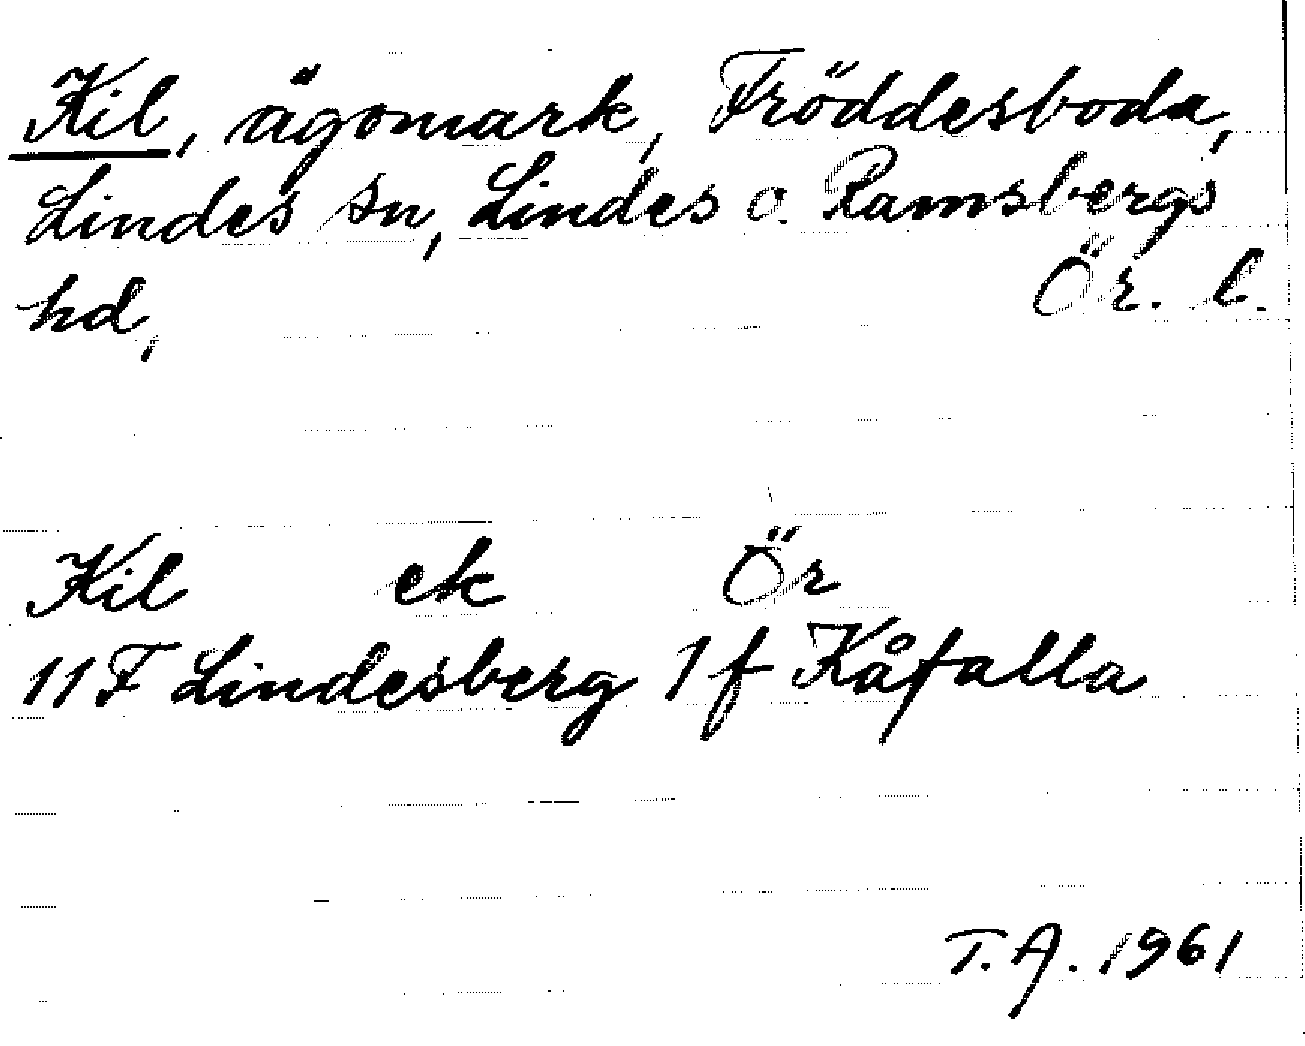 Kil, ägomark, Fröddesboda,
Lindes sn, Lindes o. Ramsbergs
hd, Ör. l.
Kil ek Ör
11F Lindesberg 1f Kåfalla
T.A. 1961